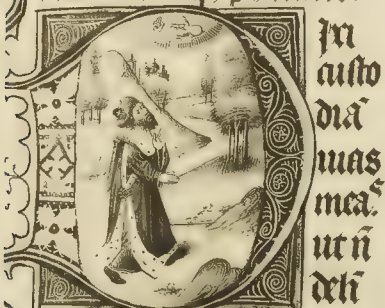 Dixi
custo
diā
uias
meaˢ.
ut n̄
deli̅